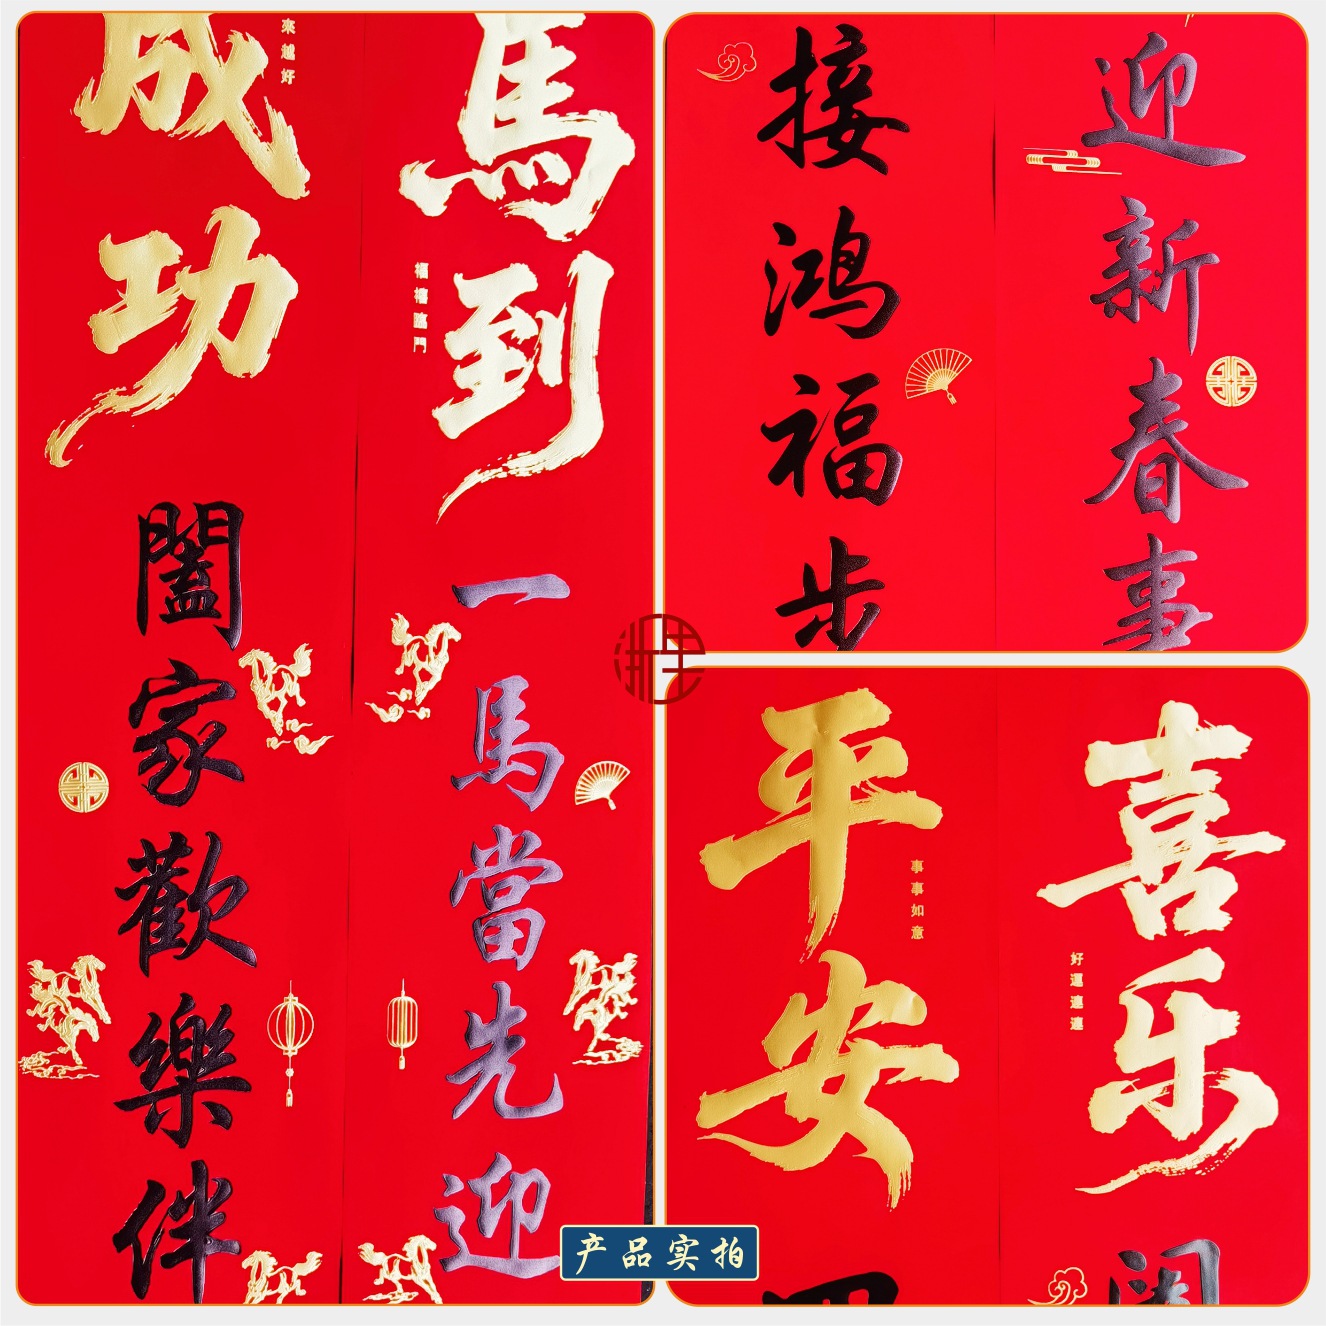 馬到
一馬當先迎
福禧臨門
成功
闔家歡樂伴
來越好
迎新春事
接鴻福步
喜乐
好運連連
阖
平安
事事如意
四
产品实拍